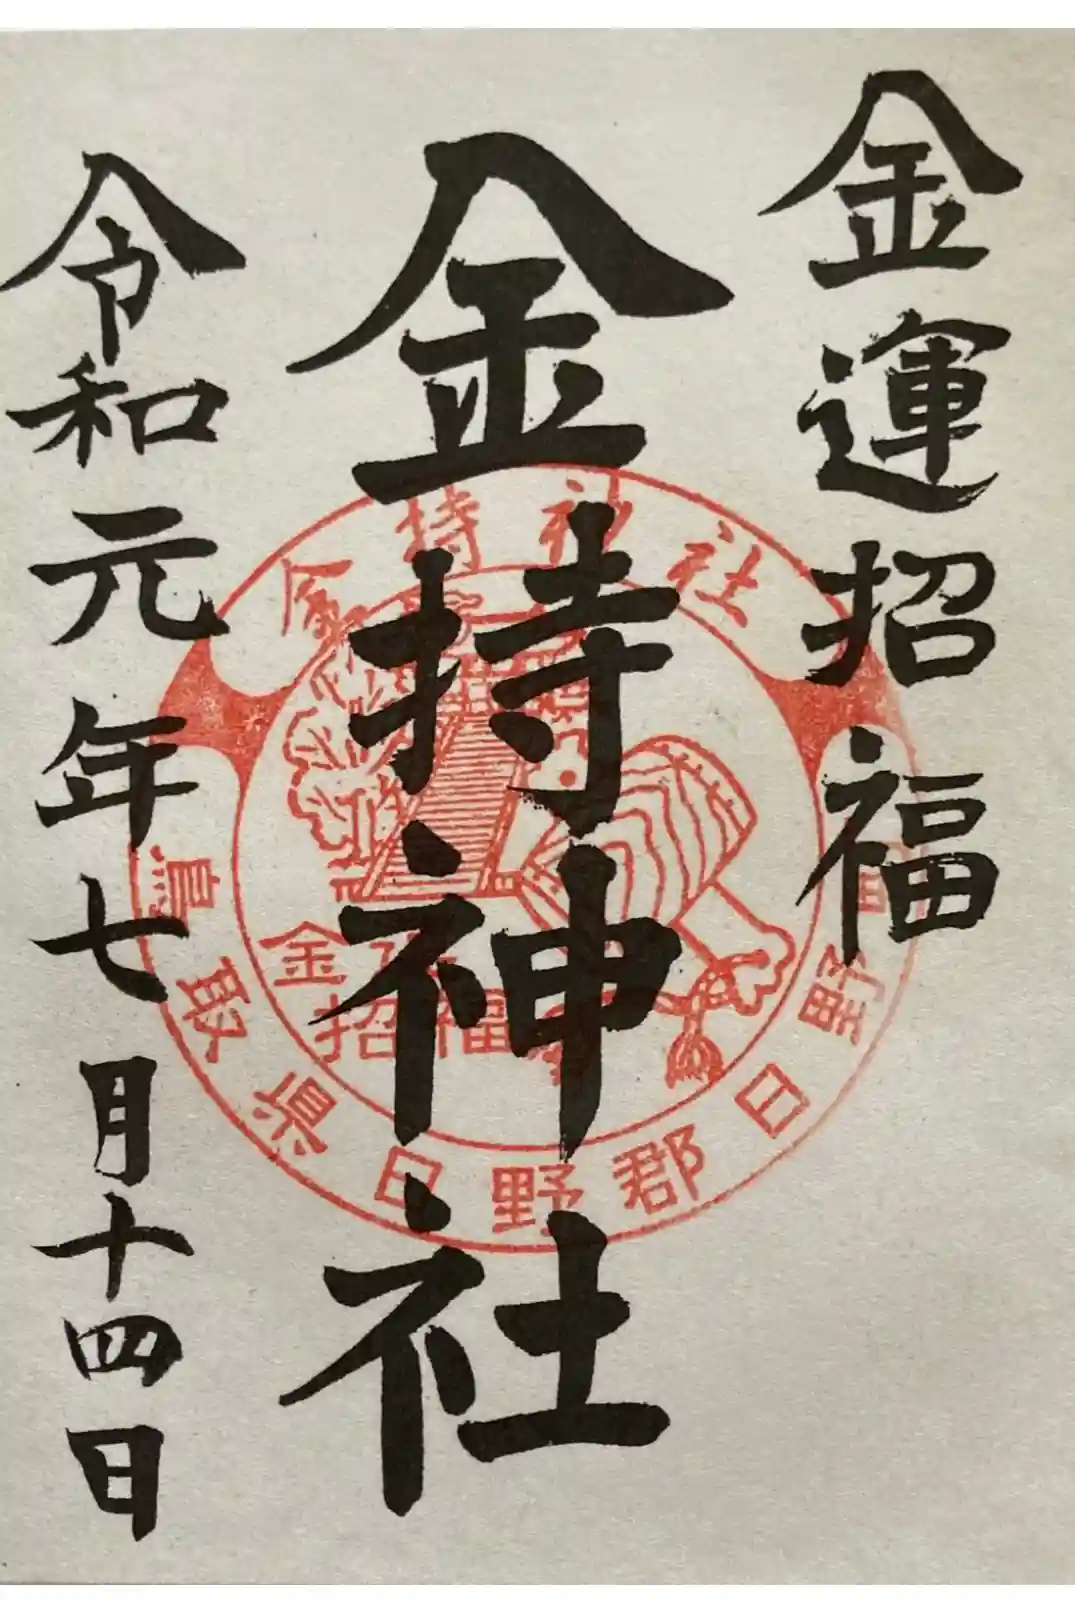 金運招福
金持神社
令和元年七月十四日
金持神社
金運
招福
鳥取県日野郡日野町